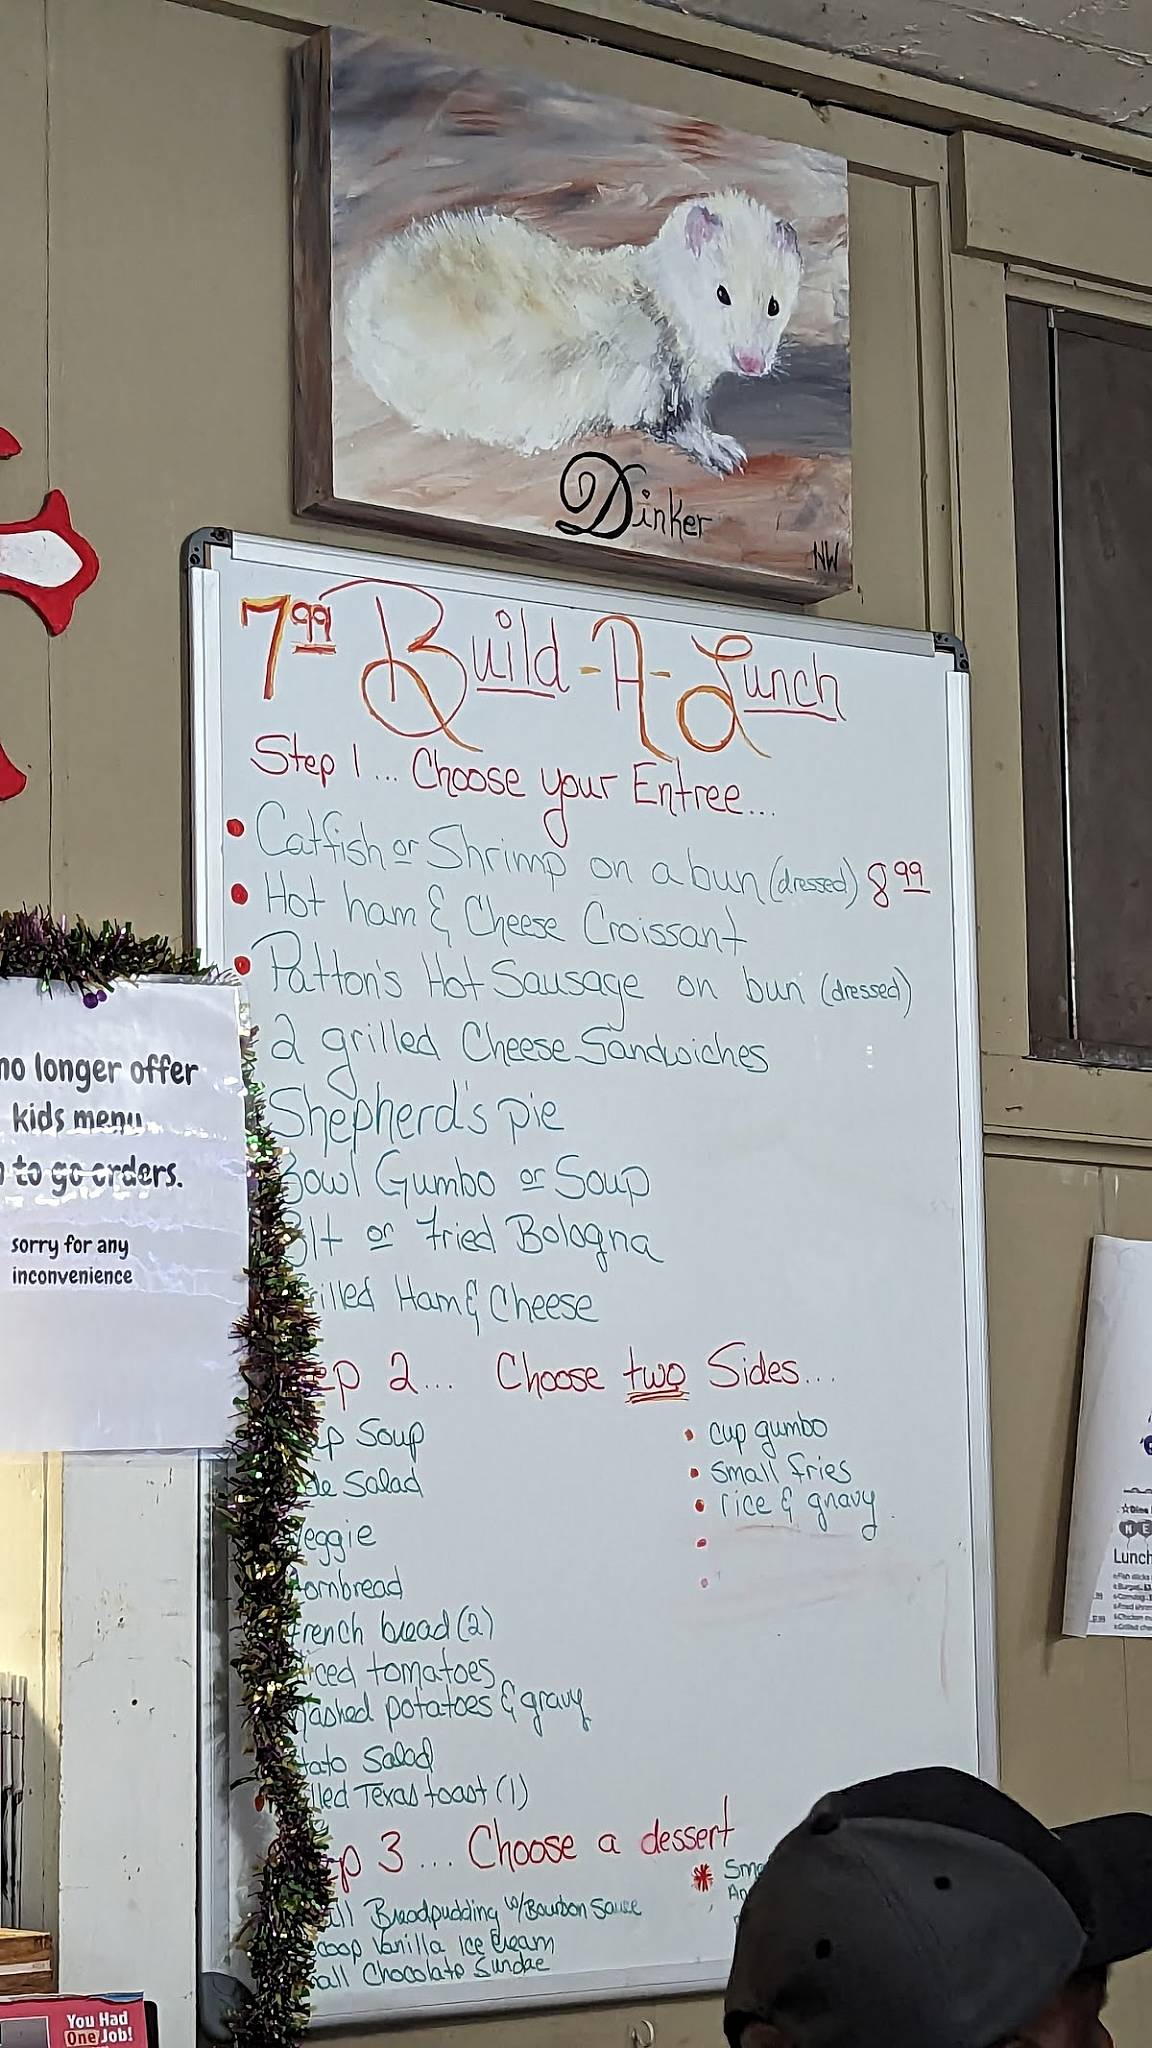 Dinker
NW
7.99 Build-A-Lunch
Step 1... Choose your Entree...
• Catfish or Shrimp on a bun (dressed) 8.99
• Hot ham & Cheese Croissant
• Patton's Hot Sausage on bun (dressed)
2 grilled Cheese Sandwiches
Shepherd's pie
Bowl Gumbo or Soup
Blt or Fried Bologna
rilled Ham & Cheese
ep 2... Choose two Sides...
up Soup
de Salad
eggie
ornbread
rench bread (2)
iced tomatoes
ashed potatoes & gravy
tato Salad
lled Texas toast (1)
• cup gumbo
• small fries
• rice & gravy
•
•
ep 3... Choose a dessert
all Breadpudding w/Bourbon Sauce
coop Vanilla Ice Cream
all Chocolate Sundae
* Sm
An
no longer offer
kids menu
to go orders.
sorry for any
inconvenience
You Had
One Job!
Lunch